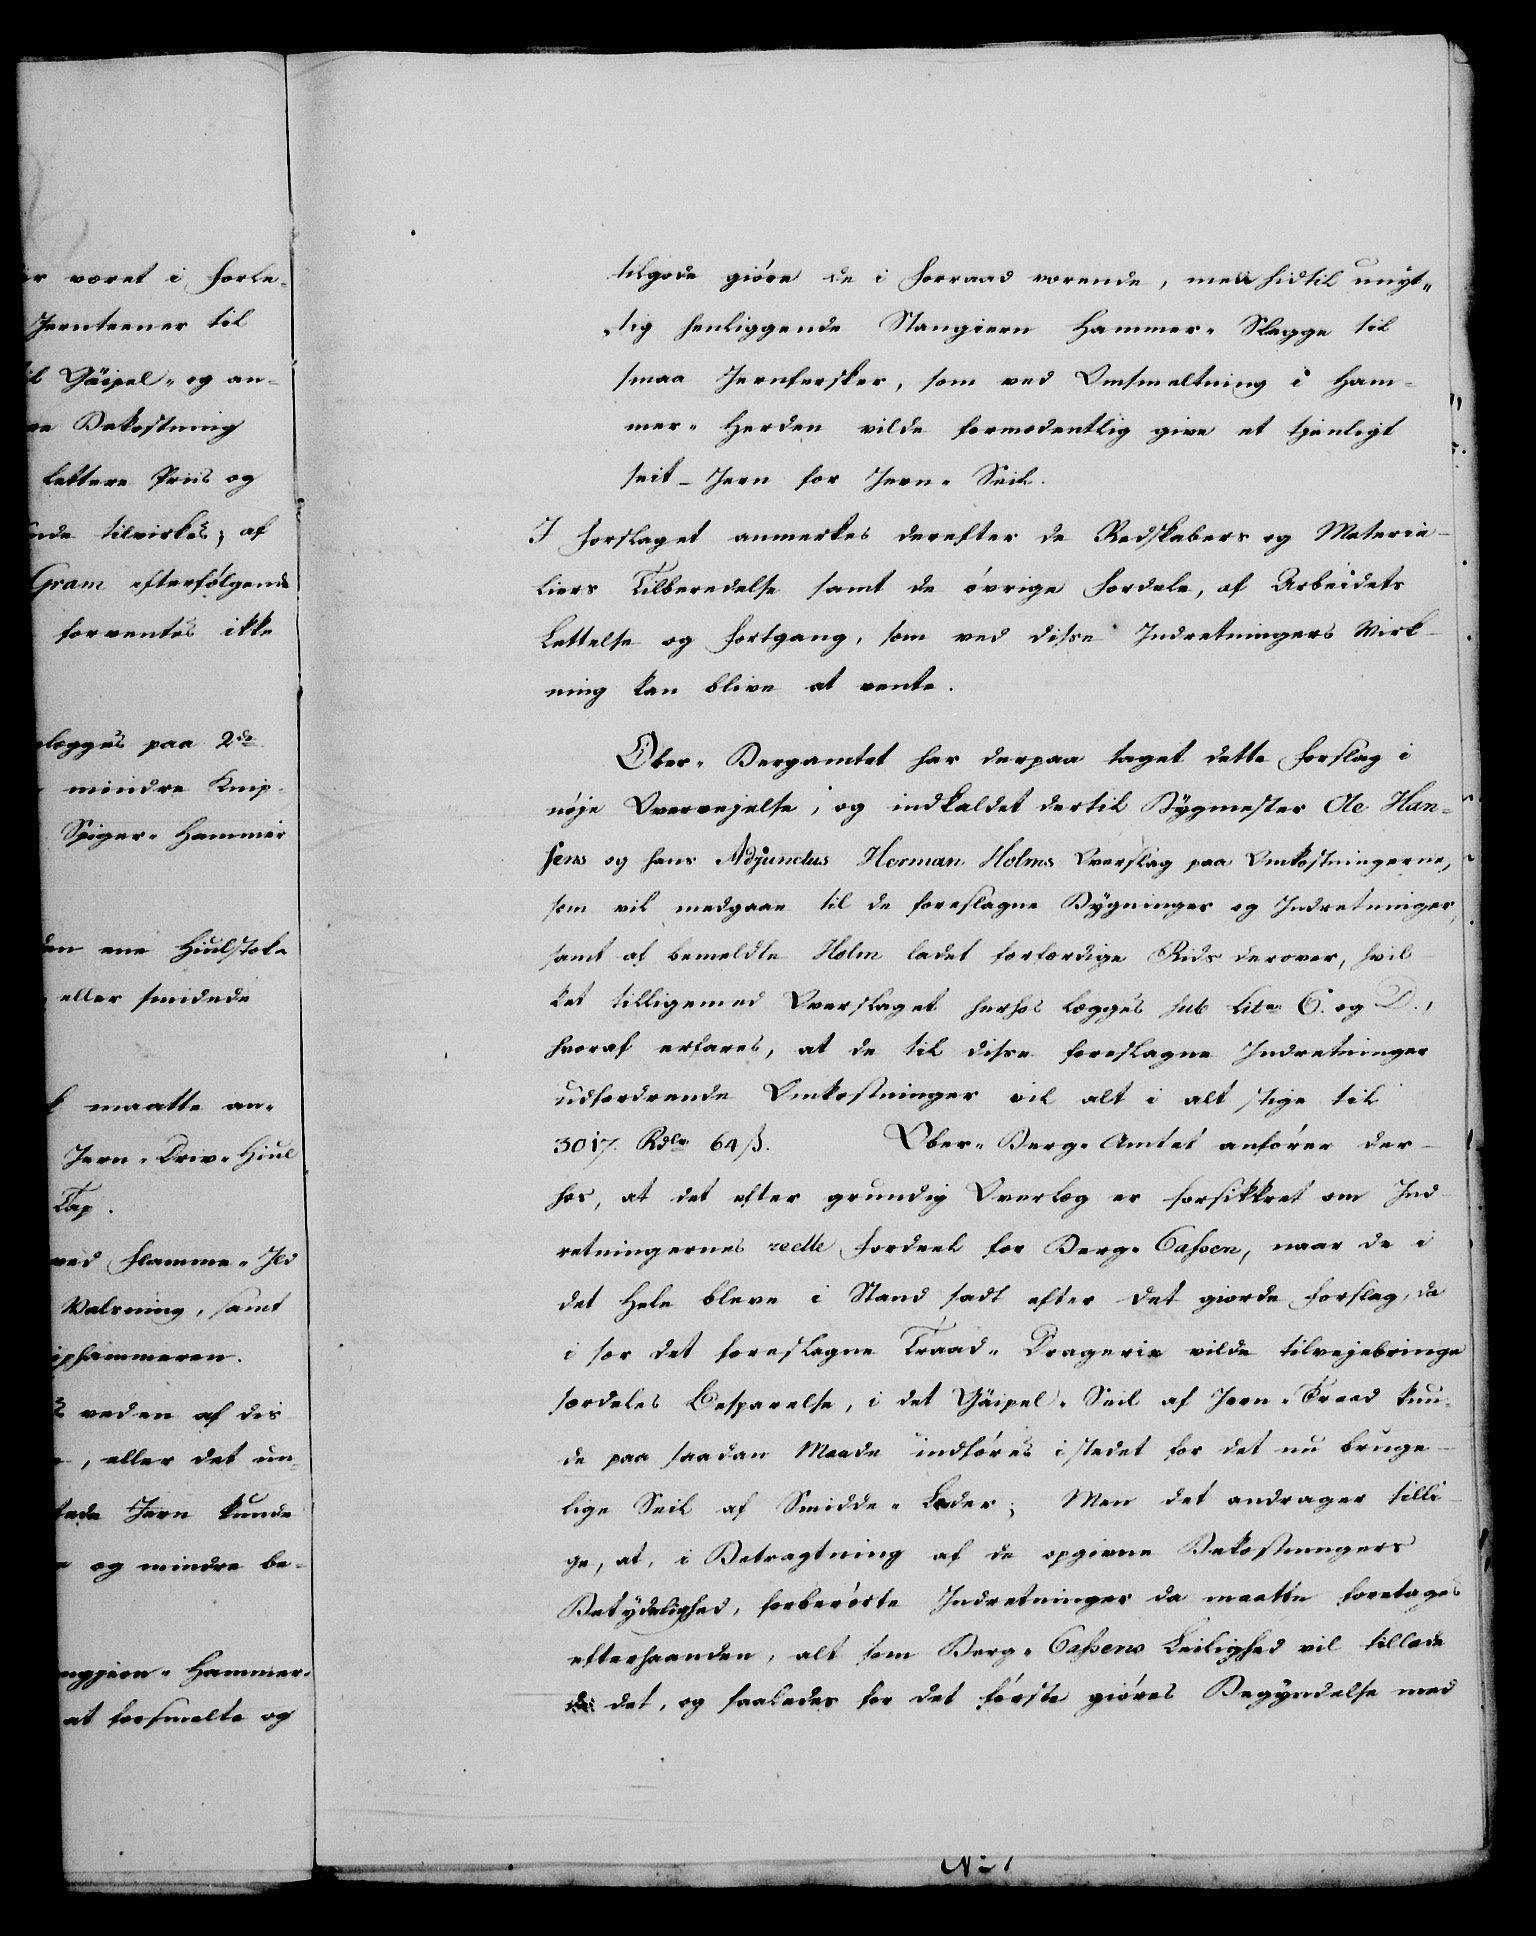 ær været i Forle-
Jernteener til
til Gäipel- og an-
re Bekostning
lettere Priis og
nde tilvirkes; af
Gram efterfølgende
forventes ikke
lægges paa 2de
mindre Knip-
Spiger-Hammer
den ene Hiulstok
eller smidede
maatte an-
Jern-Driv-Hiul
Tap.
ved Flamme-Ild
Valsning, samt
iphammeren.
veden af dis
, eller det un-
tede Jern kunde
og mindre be-
ngjern-Hammer-
at forsmelte og
tilgode giøre de i Forraad værende, men hidtil unyt-
tig henliggende Stangjern Hammer-Slagge til
smaa Jernfersker, som ved Omsmeltning i Ham-
mer-Herden vilde formodentlig give et tjenligt
seit-Jern for Jern-Seil.
I Forslaget anmerkes derefter de Redskabers og Materia-
liers Tilberedelse samt de øvrige Fordele, af Arbeidets
Lettelse og Fortgang, som ved disse Indretningers Virk-
ning kan blive at vente.
Ober-Bergamtet har derpaa taget dette Forslag i
nøje Overvejelse, og indkaldet dertil Bÿgmester Ole Han-
sens og hans Adjunctus Herman Holms Overslag paa Omkostningerne,
som vil medgaae til de foreslagne Bÿgninger og Indretninger,
samt af bemeldte Holm ladet forfærdige Rids derover, hvil-
ket tilligemed Overslaget herhos lægges sub Litr C. og D.,
hvoraf erfares, at de til disse foreslagne Indretninger
udfordrende Omkostninger vil alt i alt stige til
3017 Rdlr 64 ß. Ober-Berg-Amtet anfører der-
hos, at det efter grundig Overlæg er forsikkret om Ind-
retningernes reelle Fordeel for Berg-Cassen, naar de i
det Hele bleve i Stand sadt efter det giorde Forslag, da
i sær det foreslagne Traad-Dragerie vilde tilvejebringe
særdeles Besparelse, i det Gäipel-Seil af Jern-Traad kun-
de paa saadan Maade indføres istedet for det nu bruge-
lige Seil af Smidde-Læder; Men det andrager tilli-
ge, at, i Betragtning af de opgivne Bekostningers
Betÿdelighed, forberørte Indretninger da maatte foretages
efterhaanden, alt som Berg-Cassens Leilighed vil tillade
det, og saaledes for det første giøres Begÿndelse med
No 1